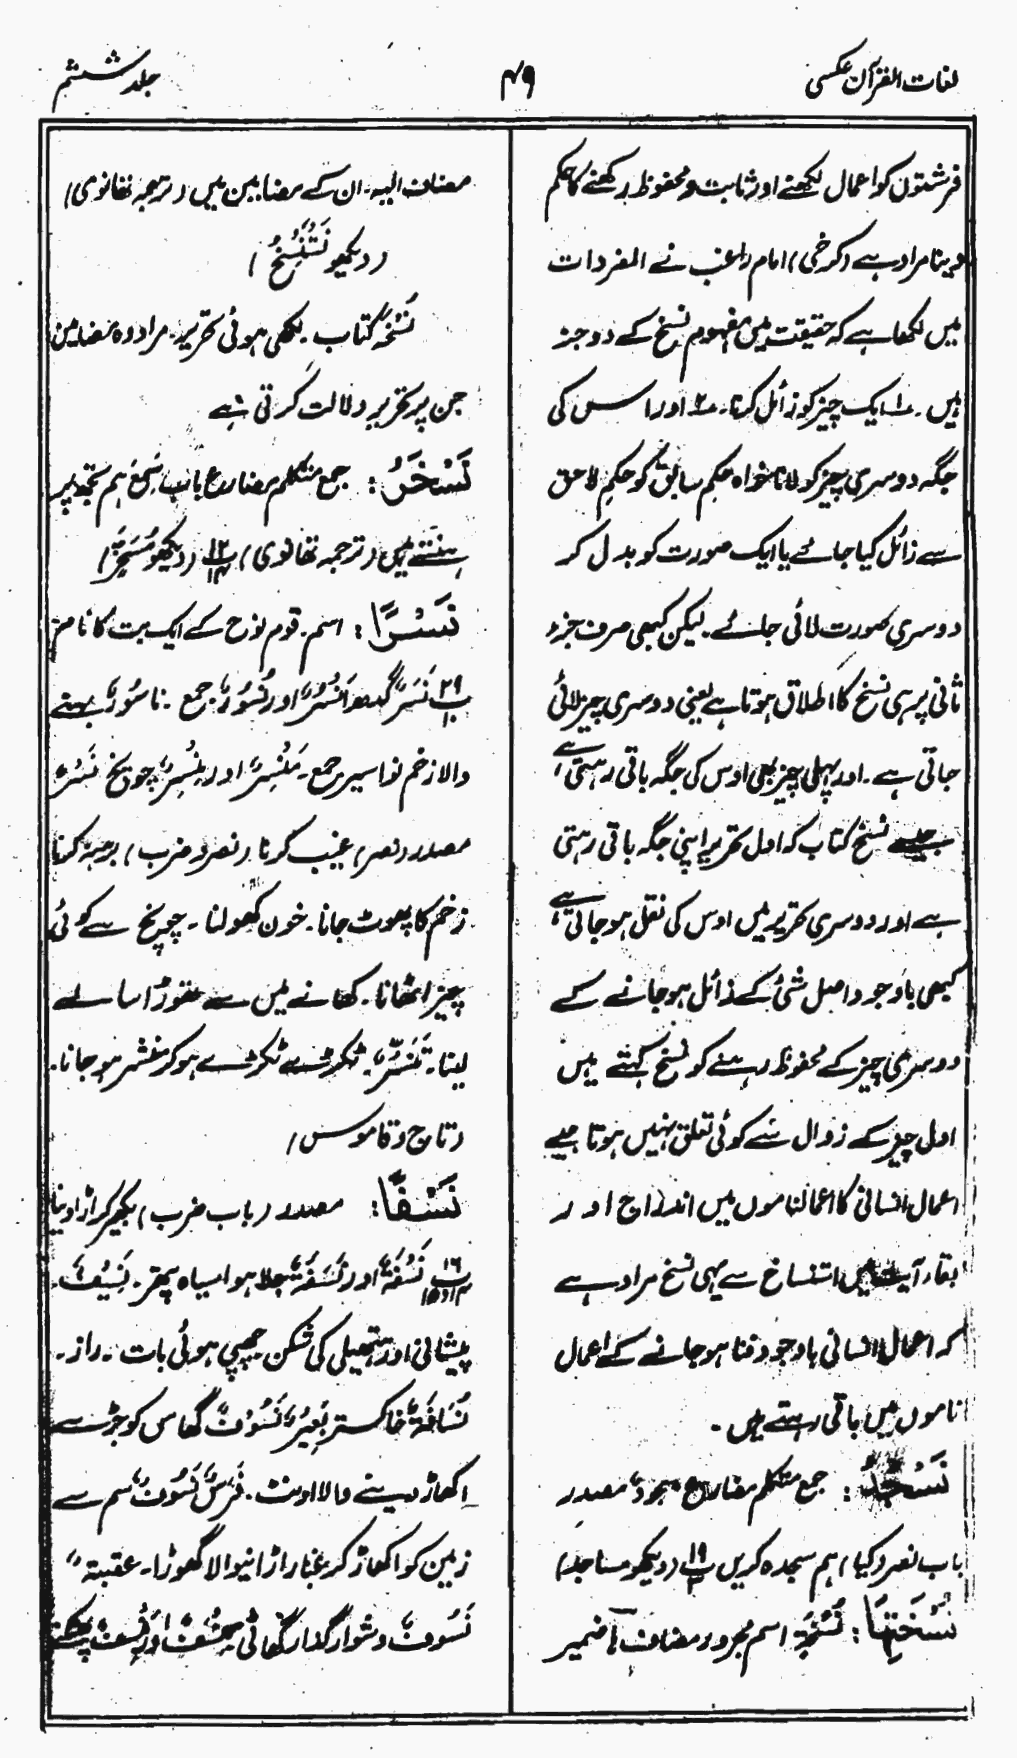 لغات القرآن عکسی
۴۹
جلد ششم
فرشتوں کو اعمال لکھنے اور ثابت و محفوظ رکھنے کا حکم
دینا مراد ہے (کرخی) امام راغب نے المفردات
میں لکھا ہے کہ حقیقت میں مفہوم نسخ کے دو جزء
ہیں ۔ ۱ ایک چیز کو زائل کرنا ۔ ۲ اور اس کی
جگہ دوسری چیز کو لانا خواہ حکم سابق کو حکم لاحق
سے زائل کیا جائے یا ایک صورت کو بدل کر
دوسری صورت لائی جائے ۔ لیکن کبھی صرف جزء
ثانی پر ہی نسخ کا اطلاق ہوتا ہے یعنی دوسری چیز لائی
جاتی ہے ۔ اور پہلی چیز بھی اوس کی جگہ باقی رہتی ہے ،
جیسے نسخ کتاب کہ اول تحریر اپنی جگہ باقی رہتی
ہے اور دوسری تحریر میں اوس کی نقل ہو جاتی ہے ،
کبھی باوجود اصل شئ کے زائل ہو جانے کے
دوسری چیز کے محفوظ رہنے کو نسخ کہتے ہیں
اول چیز کے زوال سے کوئی تعلق نہیں ہوتا جیسے
اعمال انسانی کا اعمالناموں میں اندراج اور
بقاء آیت میں استنساخ سے یہی نسخ مراد ہے
کہ اعمال انسانی باوجود فنا ہو جانے کے اعمال
ناموں میں باقی رہتے ہیں ۔
نَسْجُدُ : جمع متکلم مضارع سجودٌ مصدر
باب نصر (کیا) ہم سجدہ کریں پ ۱۹ (دیکھو مساجد)
نُسْخَتِهَا : نُسْخَۃِ اسم مجرور مضاف ہا ضمیر
مضاف الیہ ۔ ان کے مضامین میں (ترجمہ تھانوی)
(دیکھو نَسْتَنْسِخُ)
نُسْخَۃٌ کتاب ۔ لکھی ہوئی تحریر ۔ مراد وہ مضامین
جن پر تحریر دلالت کرتی ہے
نَسْخَرُ : جمع متکلم مضارع باب سَمِعَ ہم تجھ پر
ہنستے ہیں (ترجمہ تھانوی) پ ۱۲ (دیکھو مَسْخِرَ)
نَسْرًا : اسم ۔ قوم نوح کے ایک بت کا نام
پ ۲۹ نَسْرٌ گدھ اَنْسُرٌ اور نُسُوْرٌ جمع ۔ نَاسُوْرٌ بہنے
والا زخم نواسیر جمع ۔ مَنْسِرٌ اور مِنْسَرٌ چونچ نَسْرٌ
مصدر (نصر) عیب کرنا (نصر و ضرب)
زخم کا پھوٹ جانا ۔ خون کھولنا ۔ چونچ سے کوئی
چیز اٹھانا ۔ کھانے میں سے تھوڑا سا لے
لینا ۔ تَنَسُّرٌ ۔ ٹکڑے ٹکڑے ہو کر منتشر ہو جانا ۔
(تاج و قاموس)
نَسْفًا : مصدر (باب ضرب) بکھیر کر اڑا دینا
پ ۱۶ نُسْفَۃٌ اور نَسْفَۃٌ جلا ہوا سیاہ پتھر ۔ نَسِیْفٌ ۔
پیشانی اور ہتھیلی کی شکن چھپی ہوئی بات ۔ راز ۔
نُسَافَۃٌ خاکستر بَعِیْرٌ نَسُوْفٌ گھاس کو جڑ سے
اکھاڑ دینے والا اونٹ ۔ فَرَسٌ نَسُوْفٌ سُم سے
زمین کو اکھاڑ کر غبار اڑانیوالا گھوڑا ۔ عقبتہ
نَسُوْفٌ دشوار گذار گھاٹی